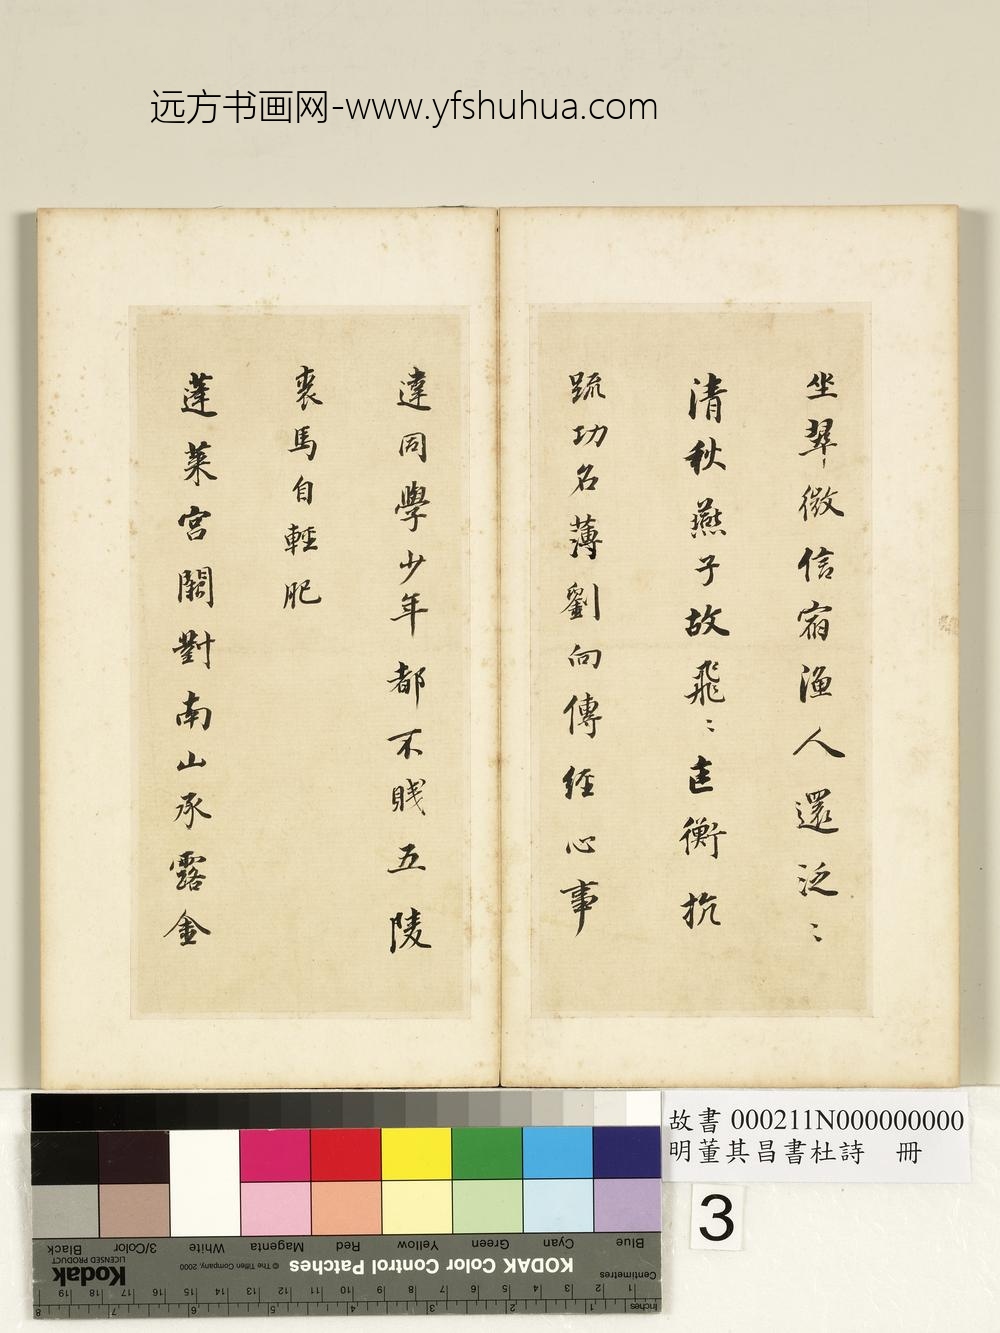 远方书画网-www.yfshuhua.com
坐翠微信宿漁人還泛〻
清秋燕子故飛〻匡衡抗
疏功名薄劉向傳經心事
違同學少年都不賤五陵
裘馬自輕肥
蓬萊宮闕對南山承露金
故書 000211N000000000
明董其昌書杜詩 冊
3
Blue Cyan Green Yellow Red Magenta White 3/Color Black
KODAK Color Control Patches © The Tiffen Company, 2000 Kodak LICENSED PRODUCT
Centimetres 1 2 3 4 5 6 7 8 9 10 11 12 13 14 15 16 17 18 19
Inches 1 2 3 4 5 6 7 8